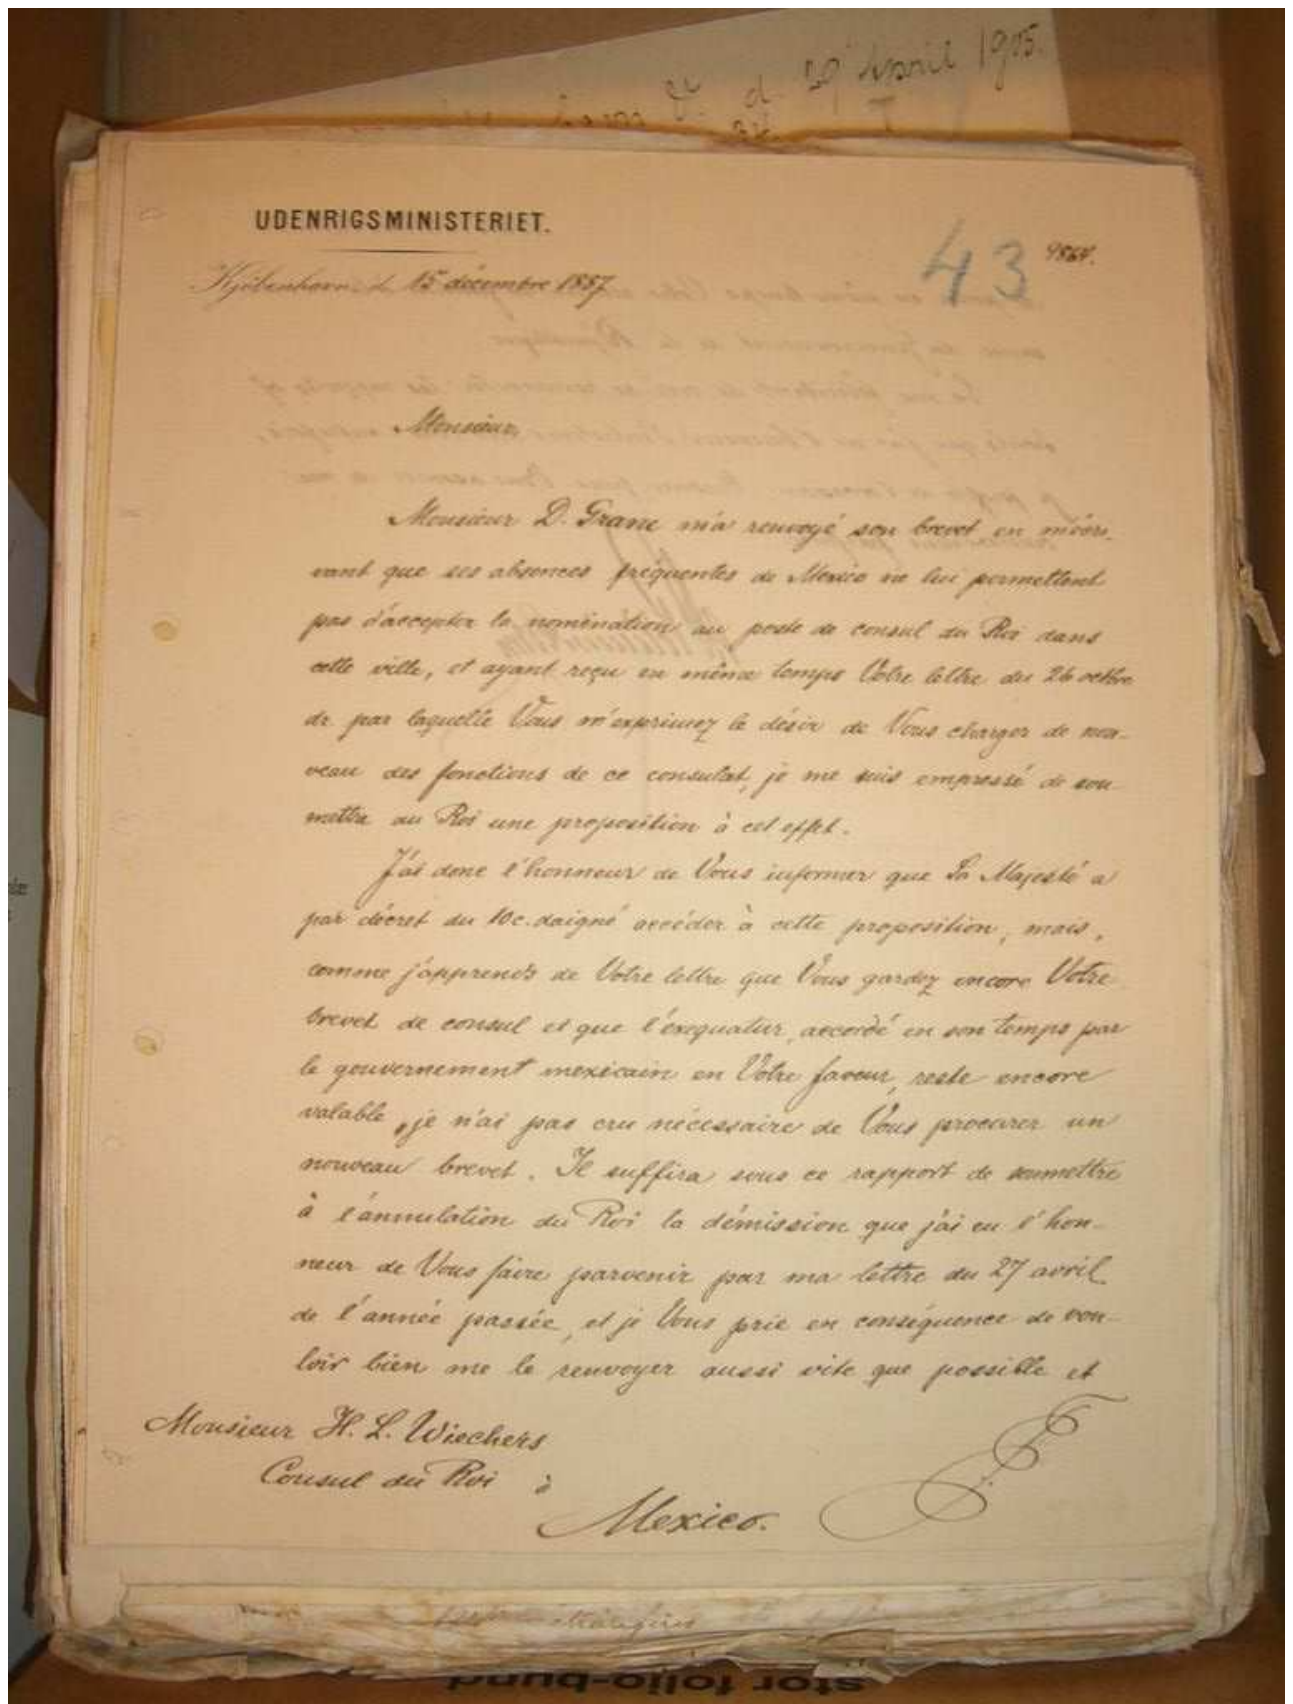 20 April 1905.
UDENRIGSMINISTERIET.
43
9864.
Kjöbenhavn, d. 15 décembre 1887.
Monsieur,
Monsieur D. Grane m'a renvoyé son brevet en m'écri-
vant que ses absences fréquentes de Mexico ne lui permettent
pas d'accepter la nomination au poste de consul du Roi dans
cette ville, et ayant reçu en même temps Votre lettre du 26 octbre
dr. par laquelle Vous m'exprimez le désir de Vous charger de nou-
veau des fonctions de ce consulat, je me suis empressé de sou-
mettre au Roi une proposition à cet effet.
J'ai donc l'honneur de Vous informer que Sa Majesté a
par décret du 10 c. daigné accéder à cette proposition, mais,
comme j'apprends de Votre lettre que Vous gardez encore Votre
brevet de consul et que l'éxequatur, accordé en son temps par
le gouvernement mexicain en Votre faveur, reste encore
valable, je n'ai pas cru nécessaire de Vous procurer un
nouveau brevet. Il suffira sous ce rapport de soumettre
à l'annulation du Roi la démission que j'ai eu l'hon-
neur de Vous faire parvenir par ma lettre du 27 avril
de l'année passée, et je Vous prie en conséquence de vou-
loir bien me le renvoyer aussi vite que possible et
Monsieur H. L. Wiechers
Consul du Roi à
Mexico.
stor folio-bund